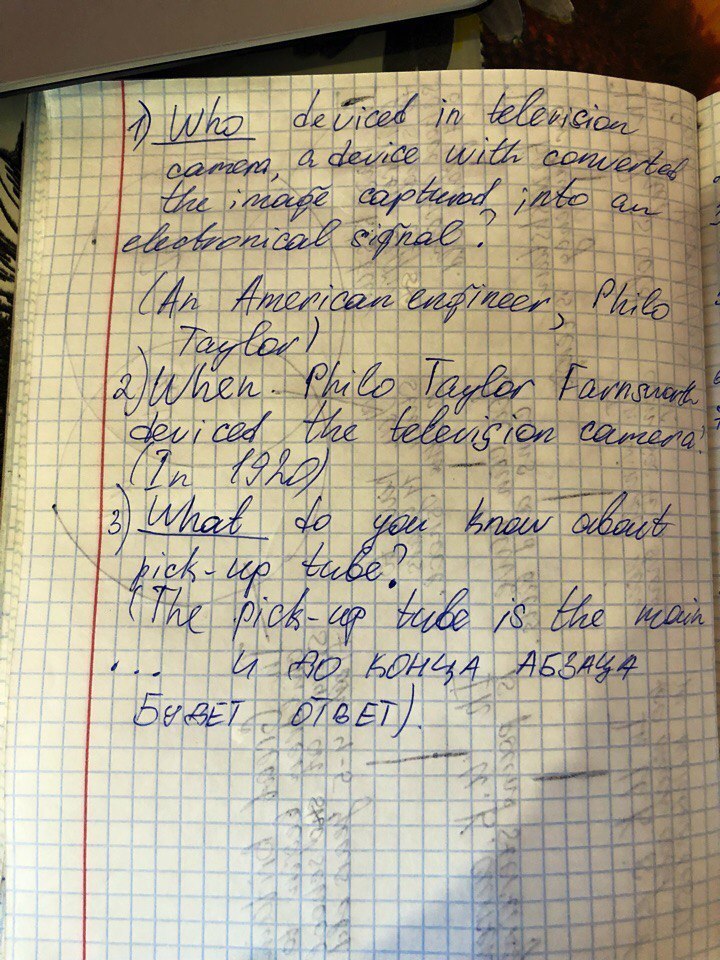 1) Who deviced in television
camera, a device with converted
the image captured into an
electronical signal?
(An American engineer, Philo
Taylor)
2) When Philo Taylor Farnsworth
deviced the television camera?
(In 1920)
3) What do you know about
pick-up tube?
(The pick-up tube is the main
... И ДО КОНЦА АБЗАЦА
БУДЕТ ОТВЕТ).